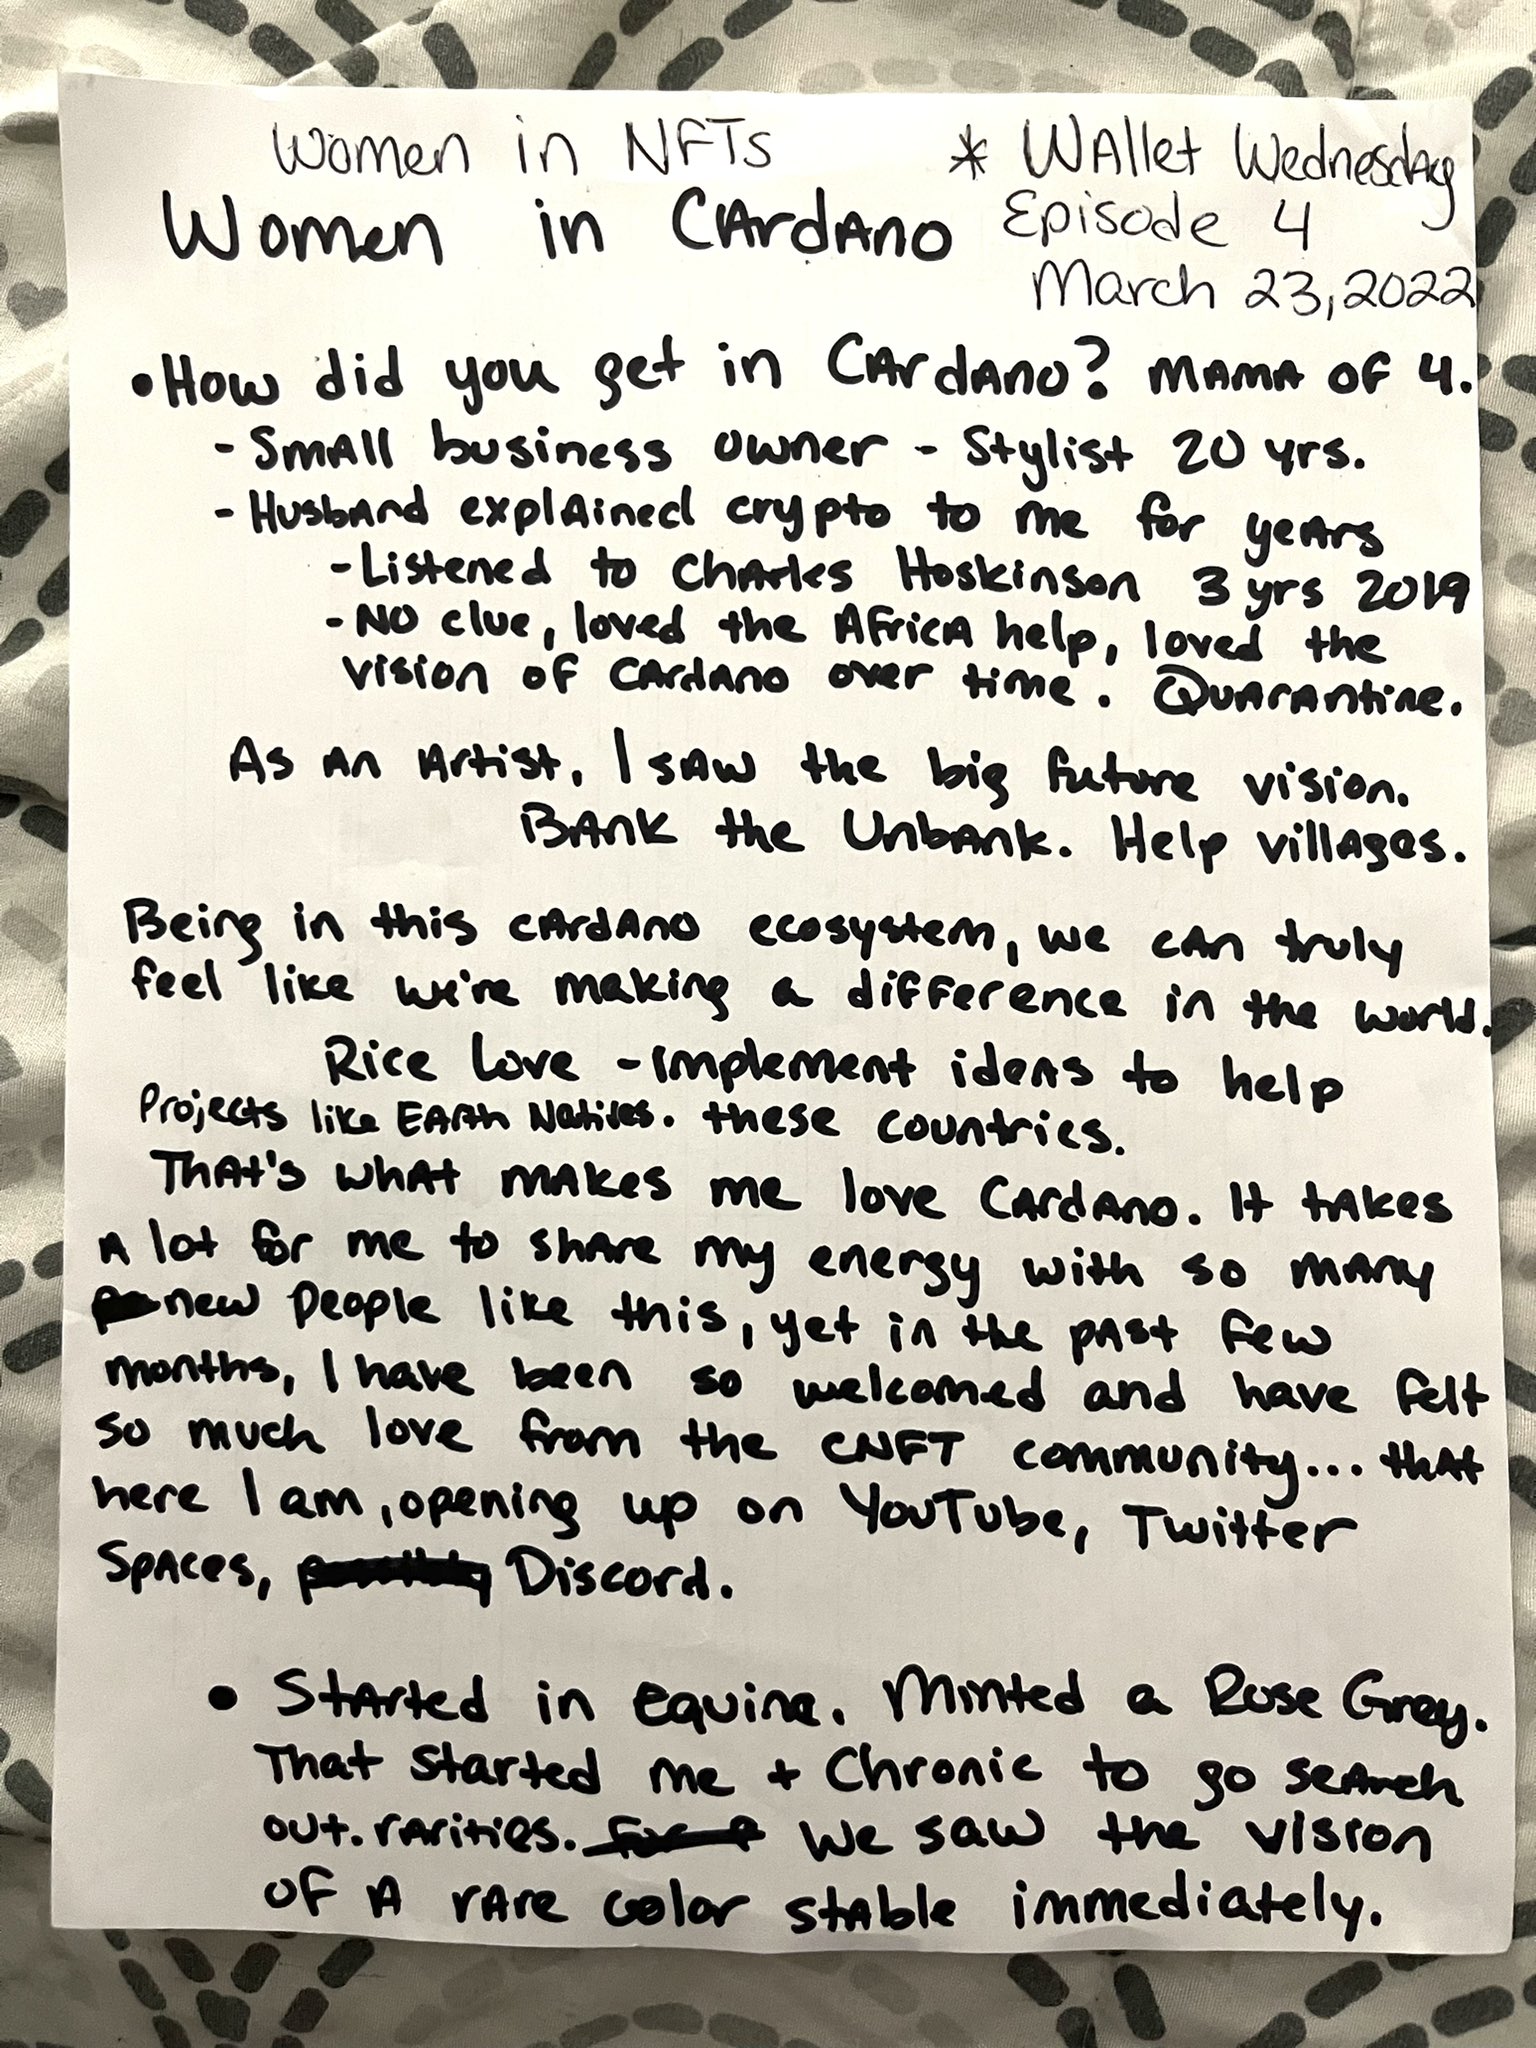 Women in NFTs * Wallet Wednesday
Women in Cardano Episode 4
March 23, 2022
• How did you get in Cardano? Mama of 4.
- Small business owner - Stylist 20 yrs.
- Husband explained crypto to me for years
- Listened to Charles Hoskinson 3 yrs 2019
- No clue, loved the Africa help, loved the
vision of Cardano over time. Quarantine.
As an artist, I saw the big future vision.
Bank the Unbank. Help villages.
Being in this cardano ecosystem, we can truly
feel like we're making a difference in the world.
Rice Love - implement ideas to help
Projects like Earth Natives. these countries.
That's what makes me love Cardano. It takes
a lot for me to share my energy with so many
new people like this, yet in the past few
months, I have been so welcomed and have felt
so much love from the CNFT community... that
here I am, opening up on YouTube, Twitter
Spaces, Discord.
• Started in Equine. Minted a Rose Grey.
That started me + Chronic to go search
out. rarities. We saw the vision
of a rare color stable immediately.